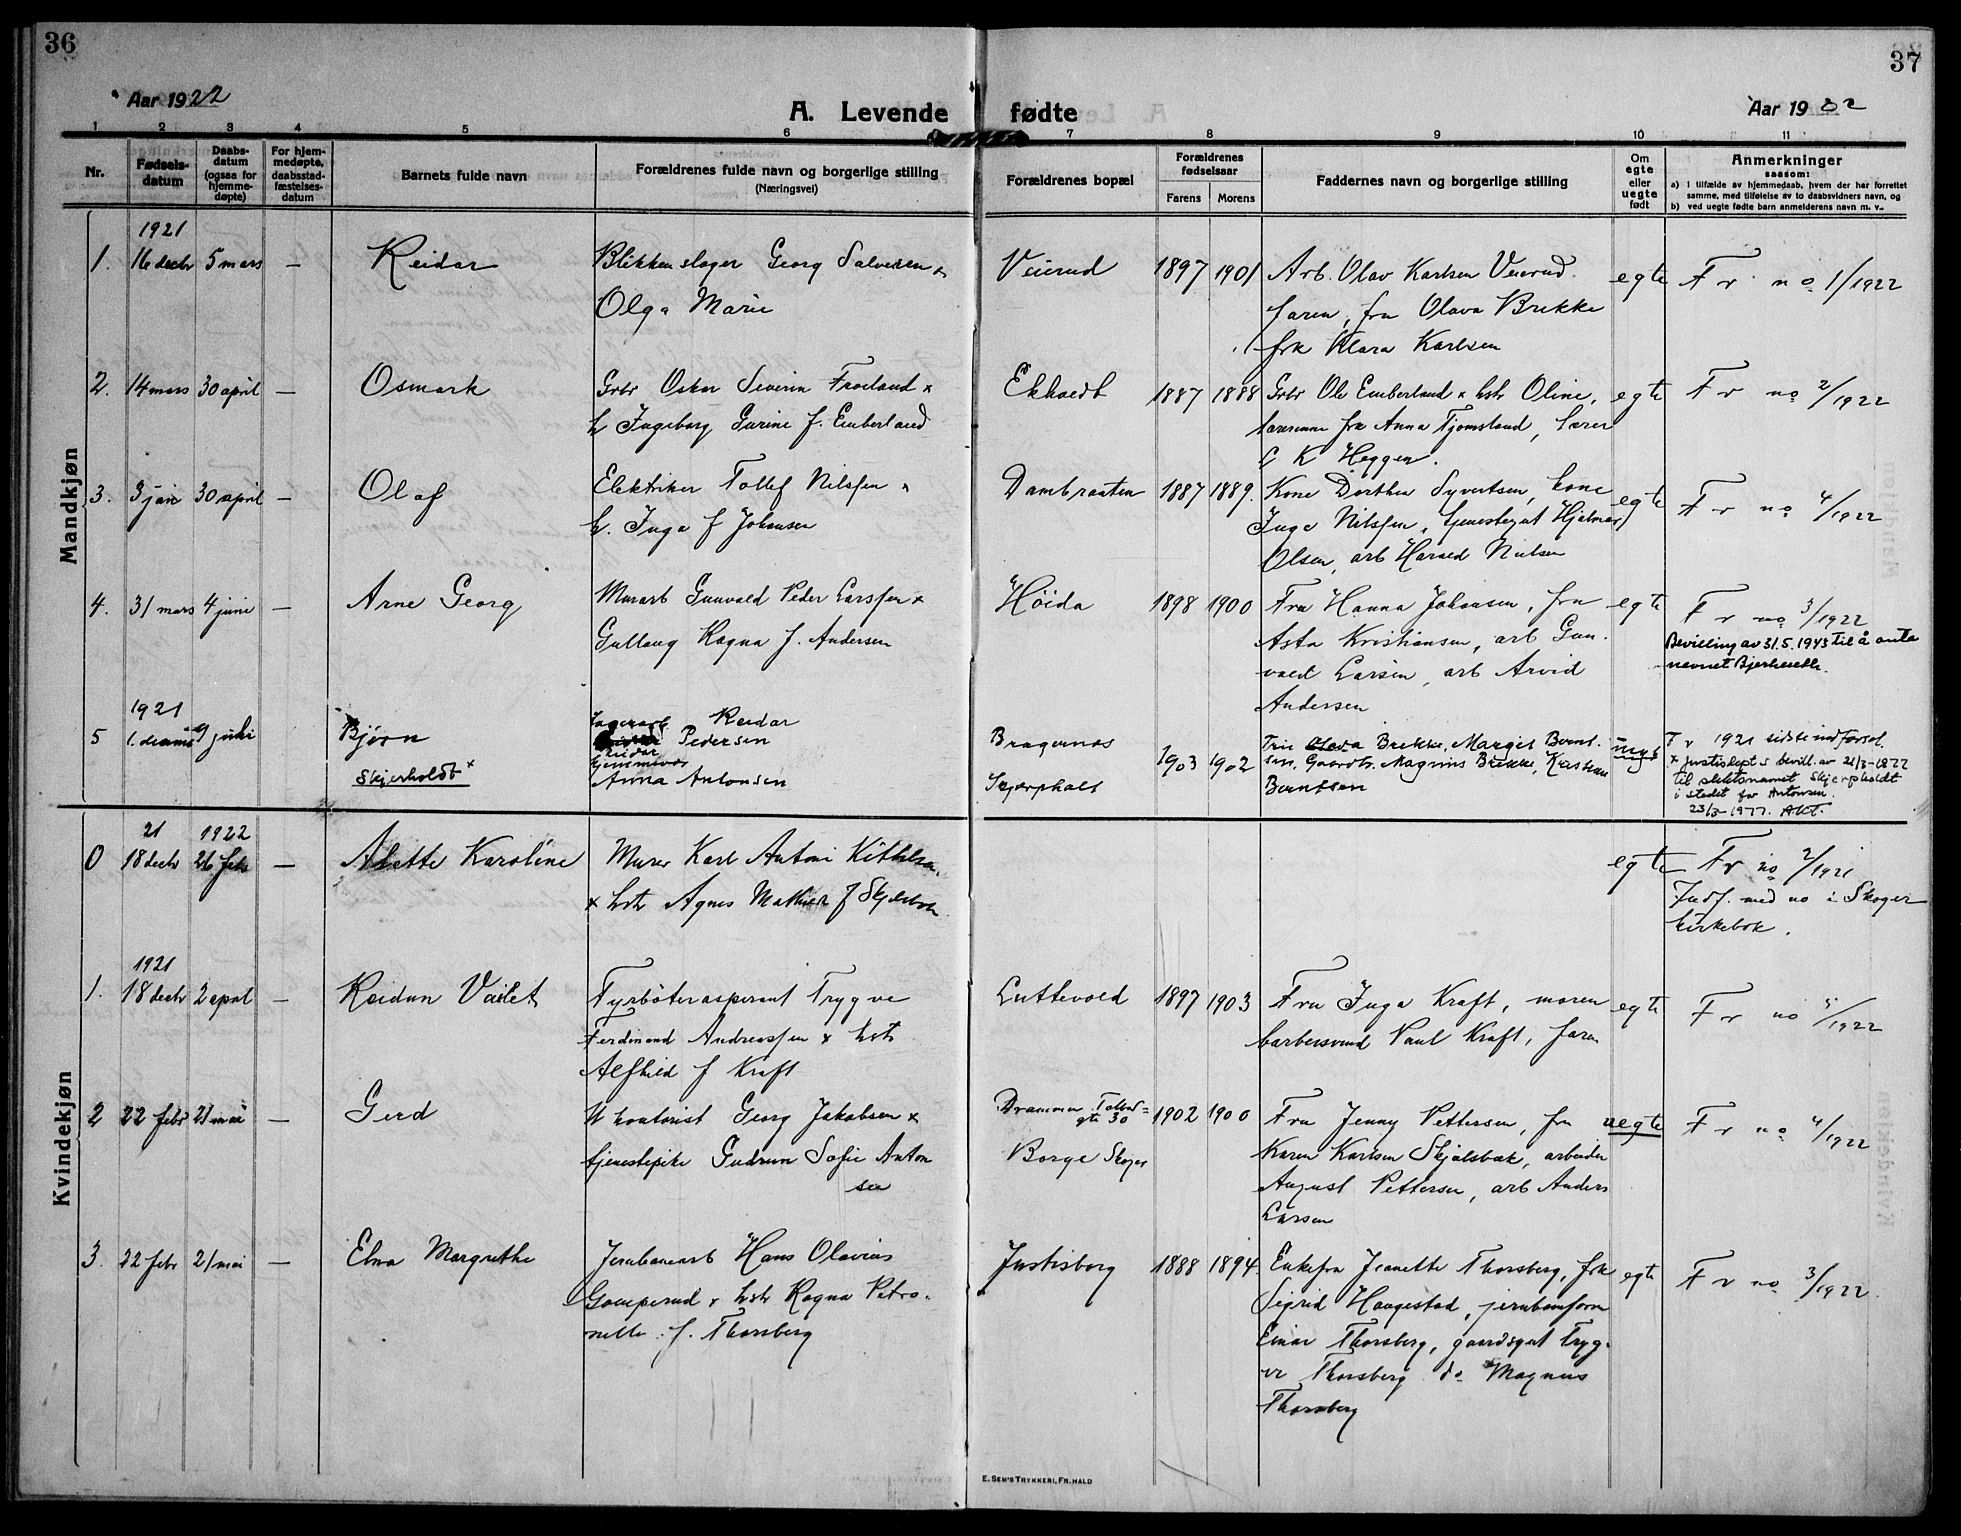 36
37
Aar 1922
A. Levende fødte
Aar 19 22
1 2 3 4 5 6 7 8 9 10 11
Nr.
Fødsels-
datum
Daabs-
datum
(ogsaa for
hjemme-
døpte)
For hjem-
medøpte,
daabsstad-
fæstelses-
datum
Barnets fulde navn
Forældrenes fulde navn og borgerlige stilling
(Næringsvei)
Forældrenes bopæl
Forældrenes
fødselsaar
Farens Morens
Faddernes navn og borgerlige stilling
Om
egte
eller
uegte
født
Anmerkninger
saasom:
a) i tilfælde av hjemmedaab, hvem der har forrettet
samme, med tilføielse av to daabsvidners navn, og
b) ved uegte fødte barn anmelderens navn m. v.
Mandkjøn
1921
1. 16 decbr 5 mars — Reidar Blikkenslager Georg Salvesen × Veierud 1897 1901 Arb. Olav Karlsen Veierud. egte F r no 1/1922
Olga Marie faren, fru Olava Brekke
frk Klara Karlsen
2. 14 mars 30 april — Osmark Grbr Oskar Severin Froeland × Ekholdt 1887 1888 Grbr Ole Emberland × hstr Oline, egte F r no 2/1922
h Ingeborg Gurine f. Emberland lærerinne frk Anna Tjomsland, lærer
G K Heggen.
3. 3 jan 30 april — Olaf Elektriker Tollef Nilssen × Dambraaten 1887 1889. Kone Dorthea Syvertsen, kone egte F r no 4/1922
h. Inga f Johansen Inga Nilssen, tjenestegut Hjalmar
Olsen, arb Harald Nielsen
4. 31 mars 4 juni — Arne Georg Murarb Gunvald Peder Larssen × Høida 1898 1900 Fru Hanna Johansen, fru egte F r no 3/1922
Gullaug Ragna f. Andersen Asta Kristiansen, arb Gun-
vald Larsen, arb Arvid
Andersen
Bevilling av 31.5.1943 til å anta
navnet
1921
5 9 juli Bjørn
Skjerholdt ×
Lagerarb Reidar
Pedersen
Reidar
Hjemmevær
Anna Antonsen
Bragernes
Skjerpholt
1903 1902
Brekke, Margit Bernt-
sen, Gaardbr. Magnus Brekke, Kristian
Berntsen
uegte
F r 1921 sidste indførsel.
× Justisdept's bevill. av 21/3-1977
til slektsnavnet Skjerpholdt
i stedet for Antonsen.
23/3-1977.
Kvindekjøn
21 1922
0 18 decbr 26 febr — Alette Karoline Murer Karl Antoni Kittelsen egte F r no 2/1921
× hstr Agnes Mathilde f Indf. med no i Skoger
kirkebok.
1921
1. 18 decbr 2 april — Reidun Vailet Fyrbøteraspirant Trygve Luttevold 1897 1903 Fru Inga Kraft, moren egte F r no 5/1922
Ferdinand Andreassen × hstr barbersvend Paul Kraft, faren
Alfhild f Kraft
2 22 febr 21 mai — Gerd kontorist Georg Jakobsen × Drammen Tolbod-
gt 30 1902 1900 Fru Jenny Pettersen, fru uegte F r no 4/1922
tjenestepike Gudrun Sofie Anton Borge Skoger Karen Karlsen Skjalsbæk, arbeider
sen August Pettersen, arb Anders
Larsen
3. 22 febr 21 mai — Elna Margrethe Jernbanearb Hans Olavius Justisborg 1888 1894. Enkefru Jeanette Thorsberg, frk egte F r no 3/1922.
Gomperud × hstr Ragna Petro- Sigrid Haugestad, jernbaneform
nelle f. Thorsberg Einar Thorsberg, gaardsgut Tryg-
ve Thorsberg do Magnus
Thorsberg
E. SEM'S TRYKKERI, FR.HALD